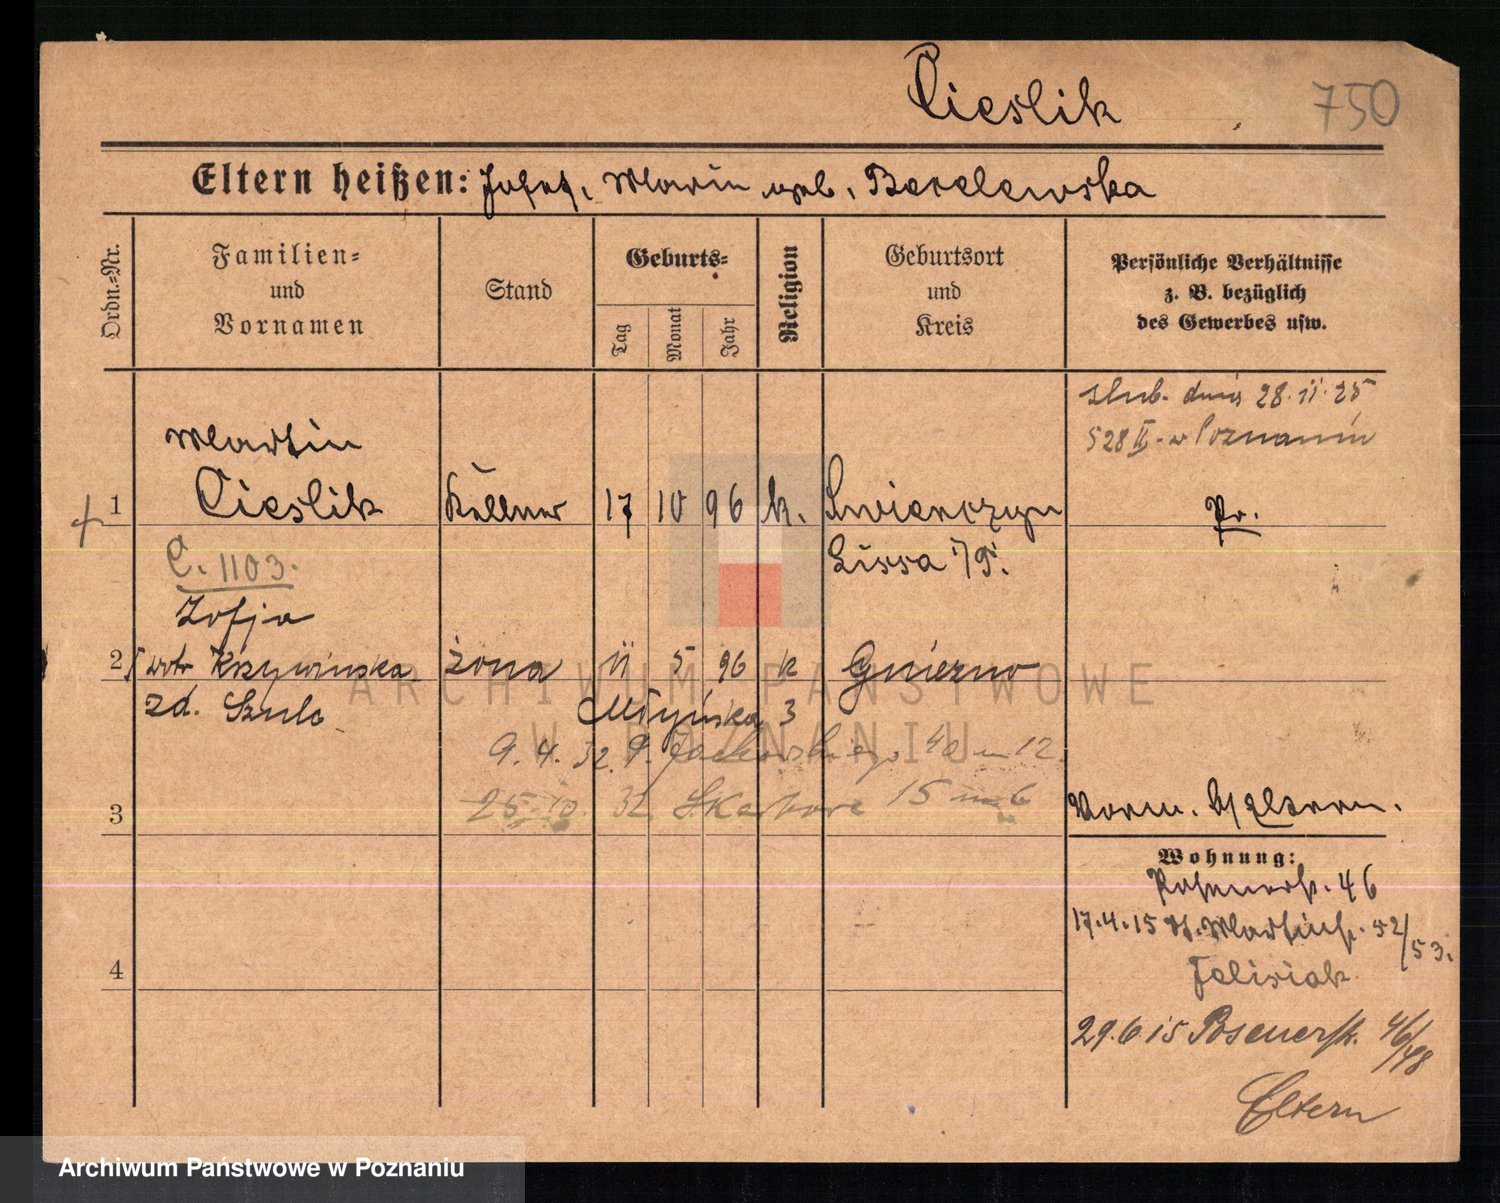 Cieslik
750
Eltern heißen: Josef, Maria geb. Berelewska
Ordn.-Nr.
Familien-
und
Vornamen
Stand
Geburts-
Tag
Monat
Jahr
Religion
Geburtsort
und
Kreis
Persönliche Verhältnisse
z. B. bezüglich
des Gewerbes usw.
ślub. dnia 28.11.25
528 II w Poznaniu
Martin
1 Cieslik Kellner 17 10 96 k. Swierczyn Pr.
C. 1103.
Lissa i/P.
Zofja
2 Krzywinska żona 11 5 96 k Gniezno
zd. Szulc
Młyńska 3
9.4.32. P. Jackowskiego 40 m 12.
25.10.32 Skarbowa 15 m 6
3
Vorm. b/ Eltern.
Wohnung:
Posenerstr. 46
17.4.15 St. Martinstr. 52/53.
Felisiak
4
29.6.15 Posenerstr. 46/48
Eltern
ARCHIWUM PAŃSTWOWE
W POZNANIU
Archiwum Państwowe w Poznaniu